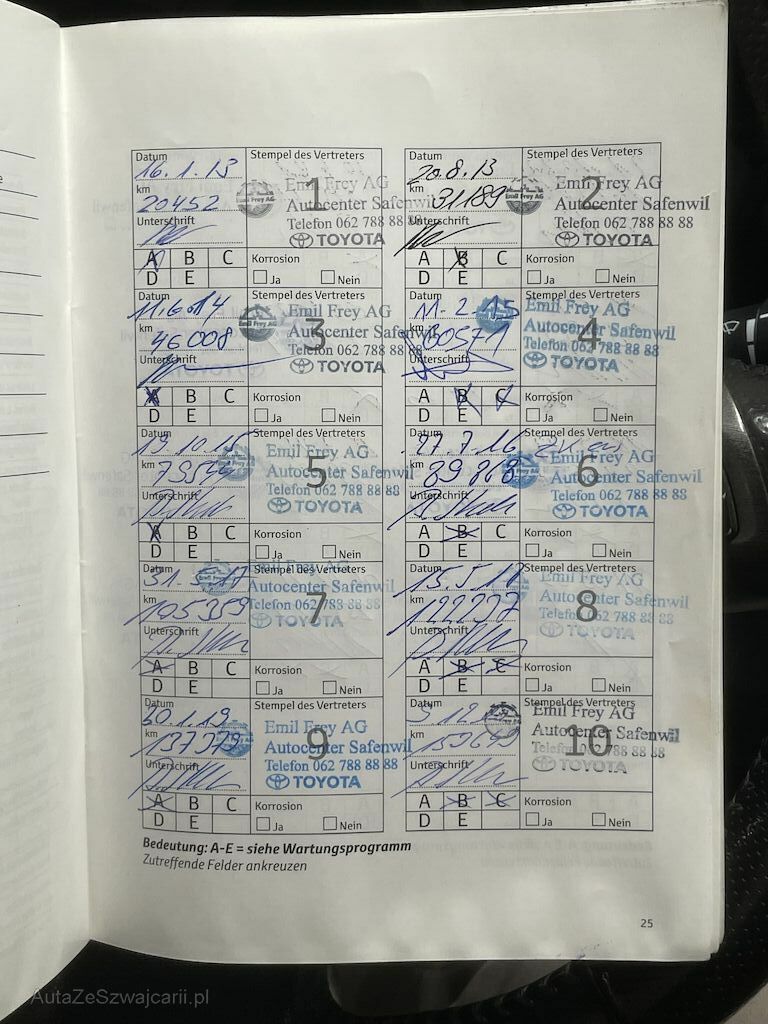 Datum
16.1.13
km
20452
Unterschrift
A B C
D E
Stempel des Vertreters
1
Emil Frey AG
Autocenter Safenwil
Telefon 062 788 88 88
TOYOTA
Korrosion
Ja Nein
Datum
20.8.13
km
31189
Unterschrift
A B C
D E
Stempel des Vertreters
2
Emil Frey AG
Autocenter Safenwil
Telefon 062 788 88 88
TOYOTA
Korrosion
Ja Nein
Datum
11.6.14
km
46008
Unterschrift
A B C
D E
Stempel des Vertreters
3
Emil Frey AG
Autocenter Safenwil
Telefon 062 788 88 88
TOYOTA
Korrosion
Ja Nein
Datum
11.2.15
km
60571
Unterschrift
A B C
D E
Stempel des Vertreters
4
Emil Frey AG
Autocenter Safenwil
Telefon 062 788 88 88
TOYOTA
Korrosion
Ja Nein
Datum
19.10.15
km
Unterschrift
A B C
D E
Stempel des Vertreters
5
Emil Frey AG
Autocenter Safenwil
Telefon 062 788 88 88
TOYOTA
Korrosion
Ja Nein
Datum
km
89868
Unterschrift
A B C
D E
Stempel des Vertreters
6
Emil Frey AG
Autocenter Safenwil
Telefon 062 788 88 88
TOYOTA
Korrosion
Ja Nein
Datum
km
105359
Unterschrift
A B C
D E
Stempel des Vertreters
7
Emil Frey AG
Autocenter Safenwil
Telefon 062 788 88 88
TOYOTA
Korrosion
Ja Nein
Datum
km
Unterschrift
A B C
D E
Stempel des Vertreters
8
Emil Frey AG
Autocenter Safenwil
Telefon 062 788 88 88
TOYOTA
Korrosion
Ja Nein
Datum
30.1.19
km
137379
Unterschrift
A B C
D E
Stempel des Vertreters
9
Emil Frey AG
Autocenter Safenwil
Telefon 062 788 88 88
TOYOTA
Korrosion
Ja Nein
Datum
km
Unterschrift
A B C
D E
Stempel des Vertreters
10
Emil Frey AG
Autocenter Safenwil
Telefon 062 788 88 88
TOYOTA
Korrosion
Ja Nein
Bedeutung: A-E = siehe Wartungsprogramm
Zutreffende Felder ankreuzen
25
AutaZeSzwajcarii.pl